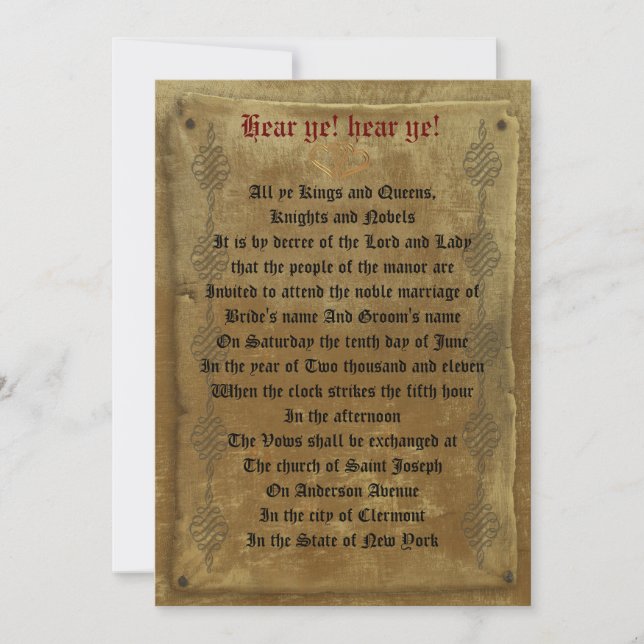 Hear ye! hear ye!
All ye Kings and Queens,
Knights and Nobels
It is by decree of the Lord and Lady
that the people of the manor are
Invited to attend the noble marriage of
Bride's name And Groom's name
On Saturday the tenth day of June
In the year of Two thousand and eleven
When the clock strikes the fifth hour
In the afternoon
The Vows shall be exchanged at
The church of Saint Joseph
On Anderson Avenue
In the city of Clermont
In the State of New York